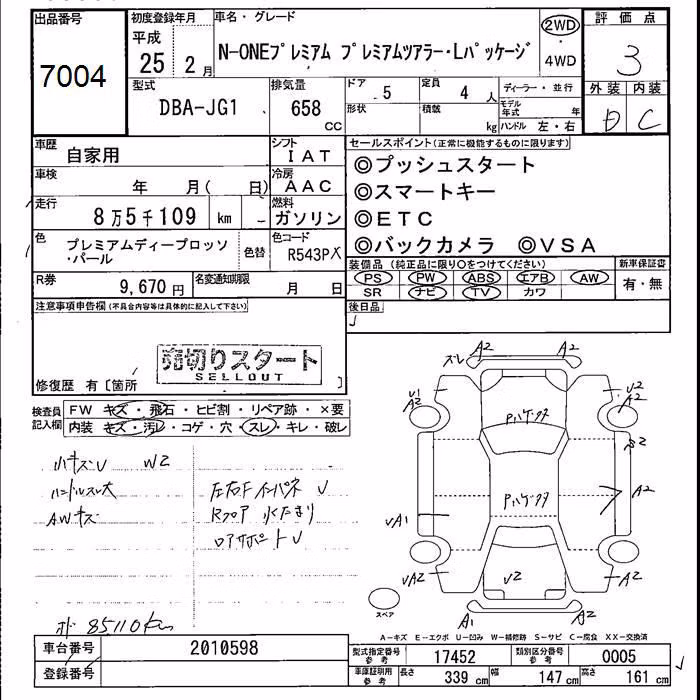 出品番号
7004
初度登録年月
平成
25 2月
車名・グレード
N-ONEプレミアム プレミアムツアラー・Lパッケージ
2WD
・
4WD
評価点
3
外装 内装
D C
型式
DBA-JG1
排気量
658
CC
ドア
5
定員
4人
形状
積載
kg
ディーラー・並行
モデル年式 年
ハンドル 左・右
車歴
自家用
シフト
IAT
車検
年 月( 日)
冷房
AAC
走行
8万5千109 km
燃料
ガソリン
色
プレミアムディープロッソ
・パール
色替
色コード
R543PX
R券
9,670円
名変通知期限
月 日
セールスポイント(正常に機能するものに限ります)
◎プッシュスタート
◎スマートキー
◎ETC
◎バックカメラ ◎VSA
装備品(純正品に限り○をつけてください)
新車保証書
PS PW ABS エアB AW
有・無
SR ナビ TV カワ
後日品
注意事項申告欄(不具合内容等は具体的に記入して下さい)
売切りスタート
SELLOUT
修復歴 有〔箇所 〕
検査員
記入欄
FW キズ・飛石・ヒビ割・リペア跡・×要
内装 キズ・汚レ・コゲ・穴・スレ・キレ・破レ
小キズU W2
ハンドルスレ大
AWキズ
左右Fインパネ U
Rフロア 水たまり
コアサポートU
85110km
スレ A2 A2
U1
A2
U2
A2
Pハケクタ
Pハケクタ
A2
UA1
UA2
U2
A2
A1 A2
スペア
A-キズ E-エクボ U-凹み W-補修跡 S-サビ C-腐食 XX-交換済
車台番号
2010598
登録番号
型式指定番号
参考
17452
類別区分番号
参考
0005
車庫証明用
参考
長さ
339 cm
幅
147 cm
高さ
161 cm